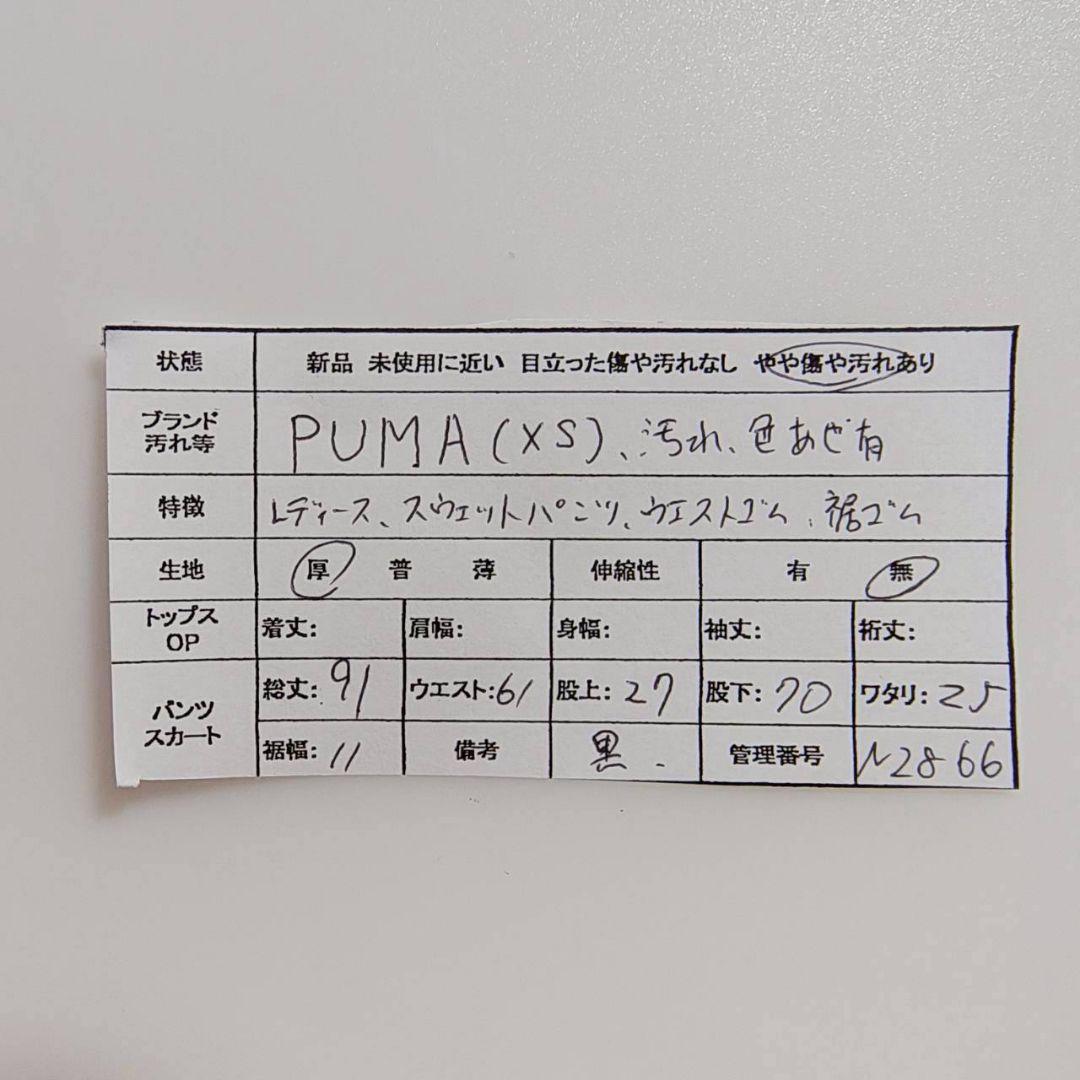 状態 新品 未使用に近い 目立った傷や汚れなし やや傷や汚れあり
ブランド
汚れ等
PUMA(XS)、汚れ、色あせ有
特徴 レディース、スウェットパンツ、ウエストゴム、裾ゴム
生地 厚 普 薄 伸縮性 有 無
トップス
OP
着丈: 肩幅: 身幅: 袖丈: 裄丈:
パンツ
スカート
総丈:91 ウエスト:61 股上:27 股下:70 ワタリ:25
裾幅:11 備考 黒. 管理番号 N2866